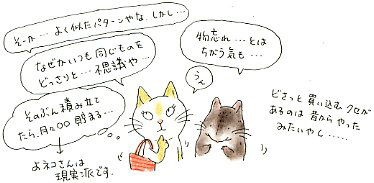 そーか… よく似たパターンやな、しかし…
なぜかいつも同じものを
どっさりと… 不思議や…
そのぶん積み立て
たら、月々○○貯まる…
よネコさんは
現実派です。
うん
物忘れ… とは
ちがう気も…
どさっと買い込むクセが
あるのは昔からやった
みたいやし……